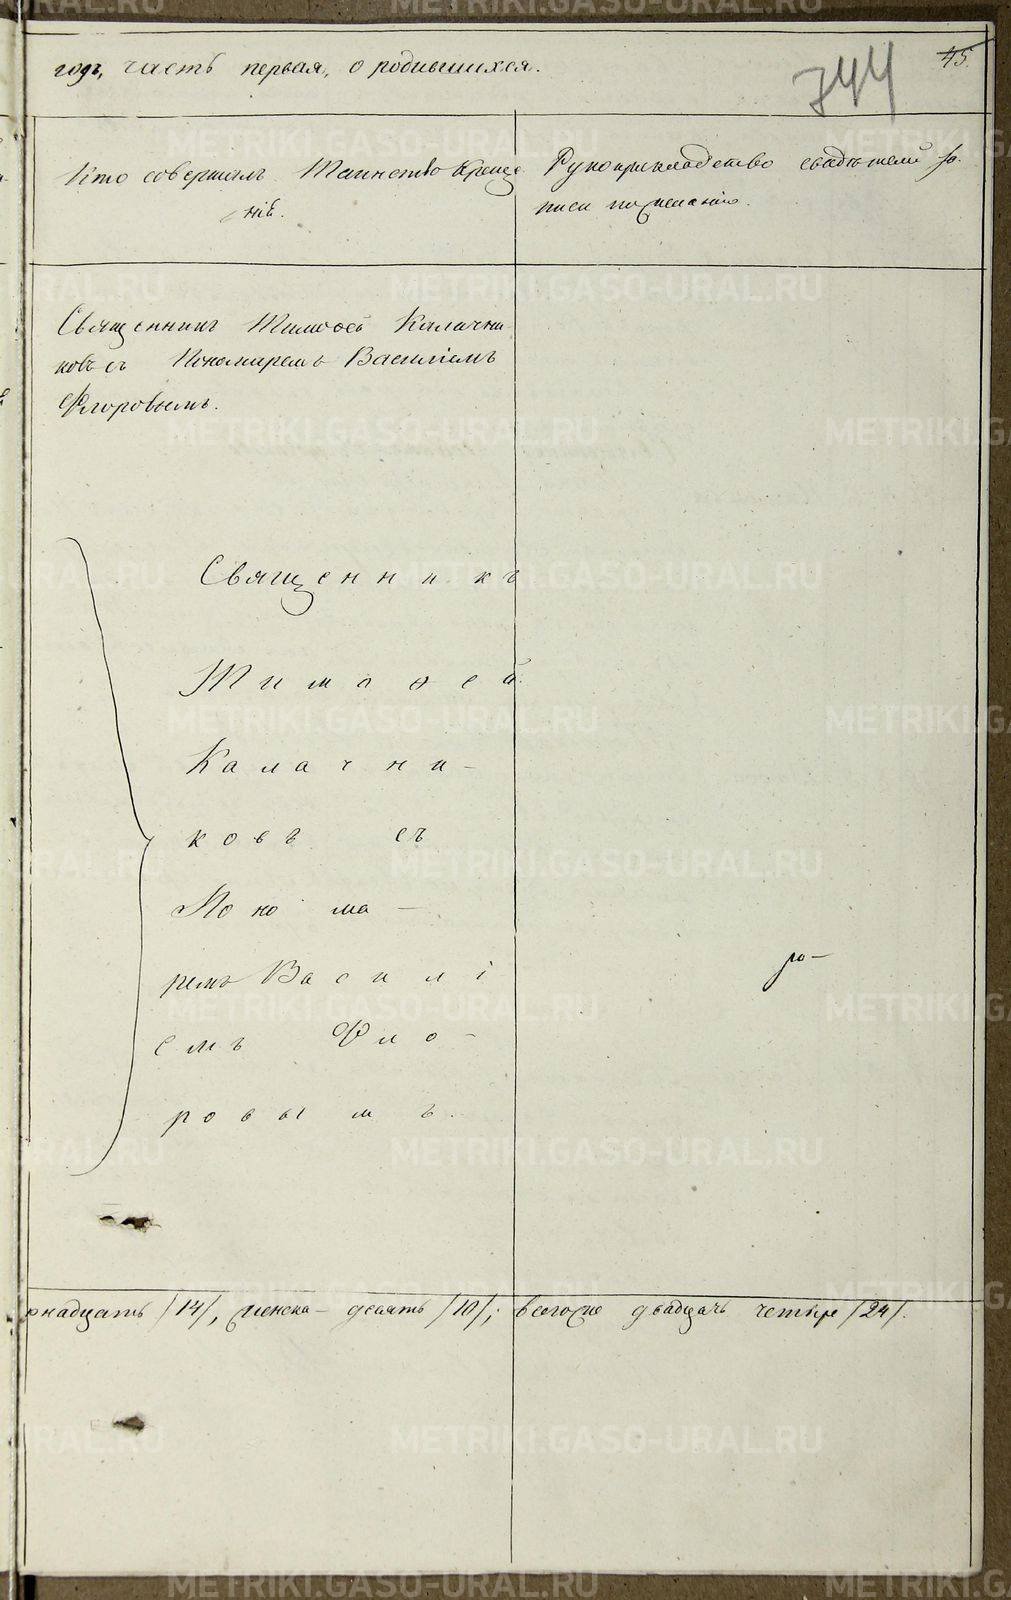 годъ, часть первая, о родившихся.
744
45.
Кто совершалъ Таинство Креще
нія.
Рукоприкладство свидѣтелей за-
писи по желанію.
Священникъ Тимоѳей Калачни-
ковъ съ Пономаремъ Василіемъ
Флоровымъ.
Священникъ
Тимоѳей
Калачни-
ковъ съ
Поно ма-
ремъ Василі
емъ Фло-
ровымъ.
рнадцать /14/, женска- десять /10/; всего же двадцать четыре /24/.
METRIKI.GASO-URAL.RU